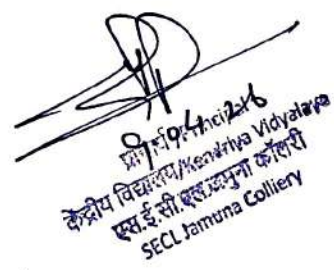 9.04.26
प्राचार्य/Principal
केंद्रीय विद्यालय/Kendriya Vidyalaya
एस.ई.सी.एल.जमुना कॉलरी
SECL Jamuna Colliery